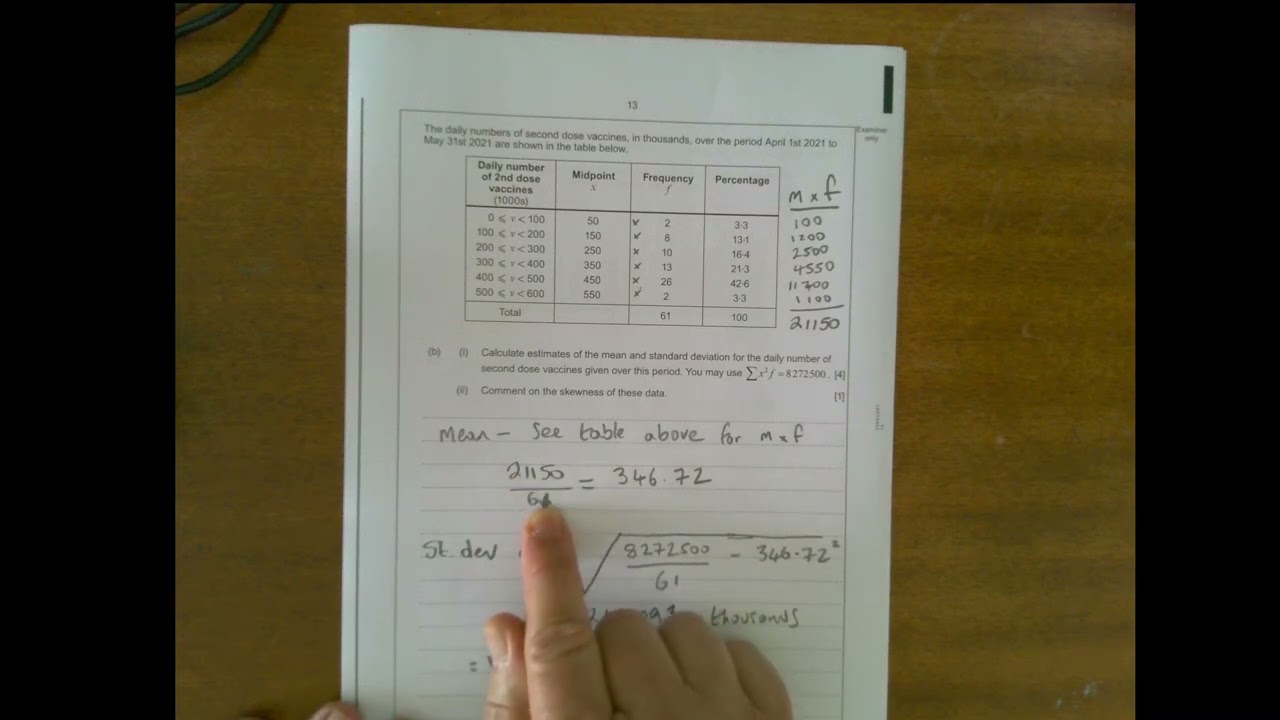 13
Examiner only
The daily numbers of second dose vaccines, in thousands, over the period April 1st 2021 to
May 31st 2021 are shown in the table below.
Daily number of 2nd dose vaccines (1000s) Midpoint x Frequency f Percentage m x f
0 ⩽ v < 100 50 x 2 3·3 100
100 ⩽ v < 200 150 x 8 13·1 1200
200 ⩽ v < 300 250 x 10 16·4 2500
300 ⩽ v < 400 350 x 13 21·3 4550
400 ⩽ v < 500 450 x 26 42·6 11700
500 ⩽ v < 600 550 x 2 3·3 1100
Total 61 100 21150
(b) (i) Calculate estimates of the mean and standard deviation for the daily number of
second dose vaccines given over this period. You may use ∑x²f = 8272500. [4]
(ii) Comment on the skewness of these data. [1]
Mean – See table above for m x f
21150
= 346.72
St. dev √ 8272500 / 61 – 346.72²
thousands
=